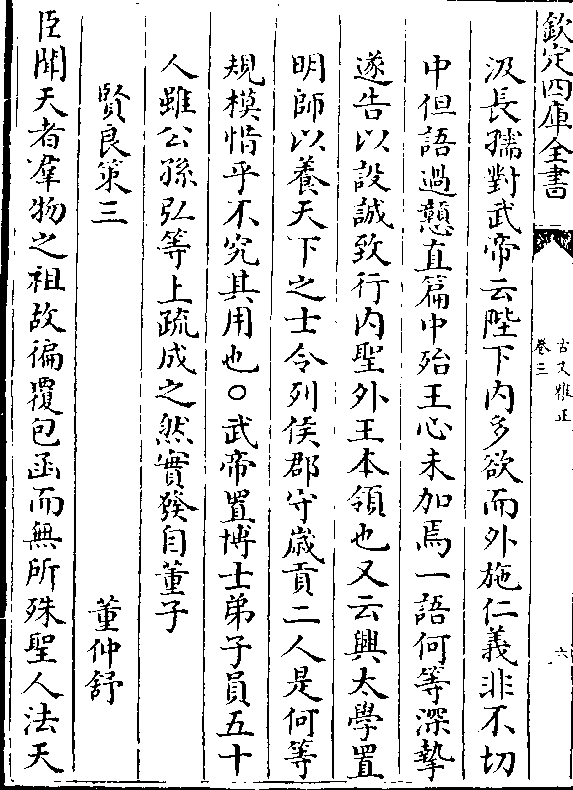 欽定四庫全書
古文雅正
卷三
六
汲長孺對武帝云陛下内多欲而外施仁義非不切
中但語過戇直篇中殆王心未加焉一語何等深摯
遂告以設誠致行内聖外王本領也又云興太學置
明師以養天下之士令列侯郡守歲貢二人是何等
規模惜乎不究其用也○武帝置博士弟子員五十
人雖公孫弘等上疏成之然實發自董子
賢良策三
董仲舒
臣聞天者羣物之祖故徧覆包函而無所殊聖人法天